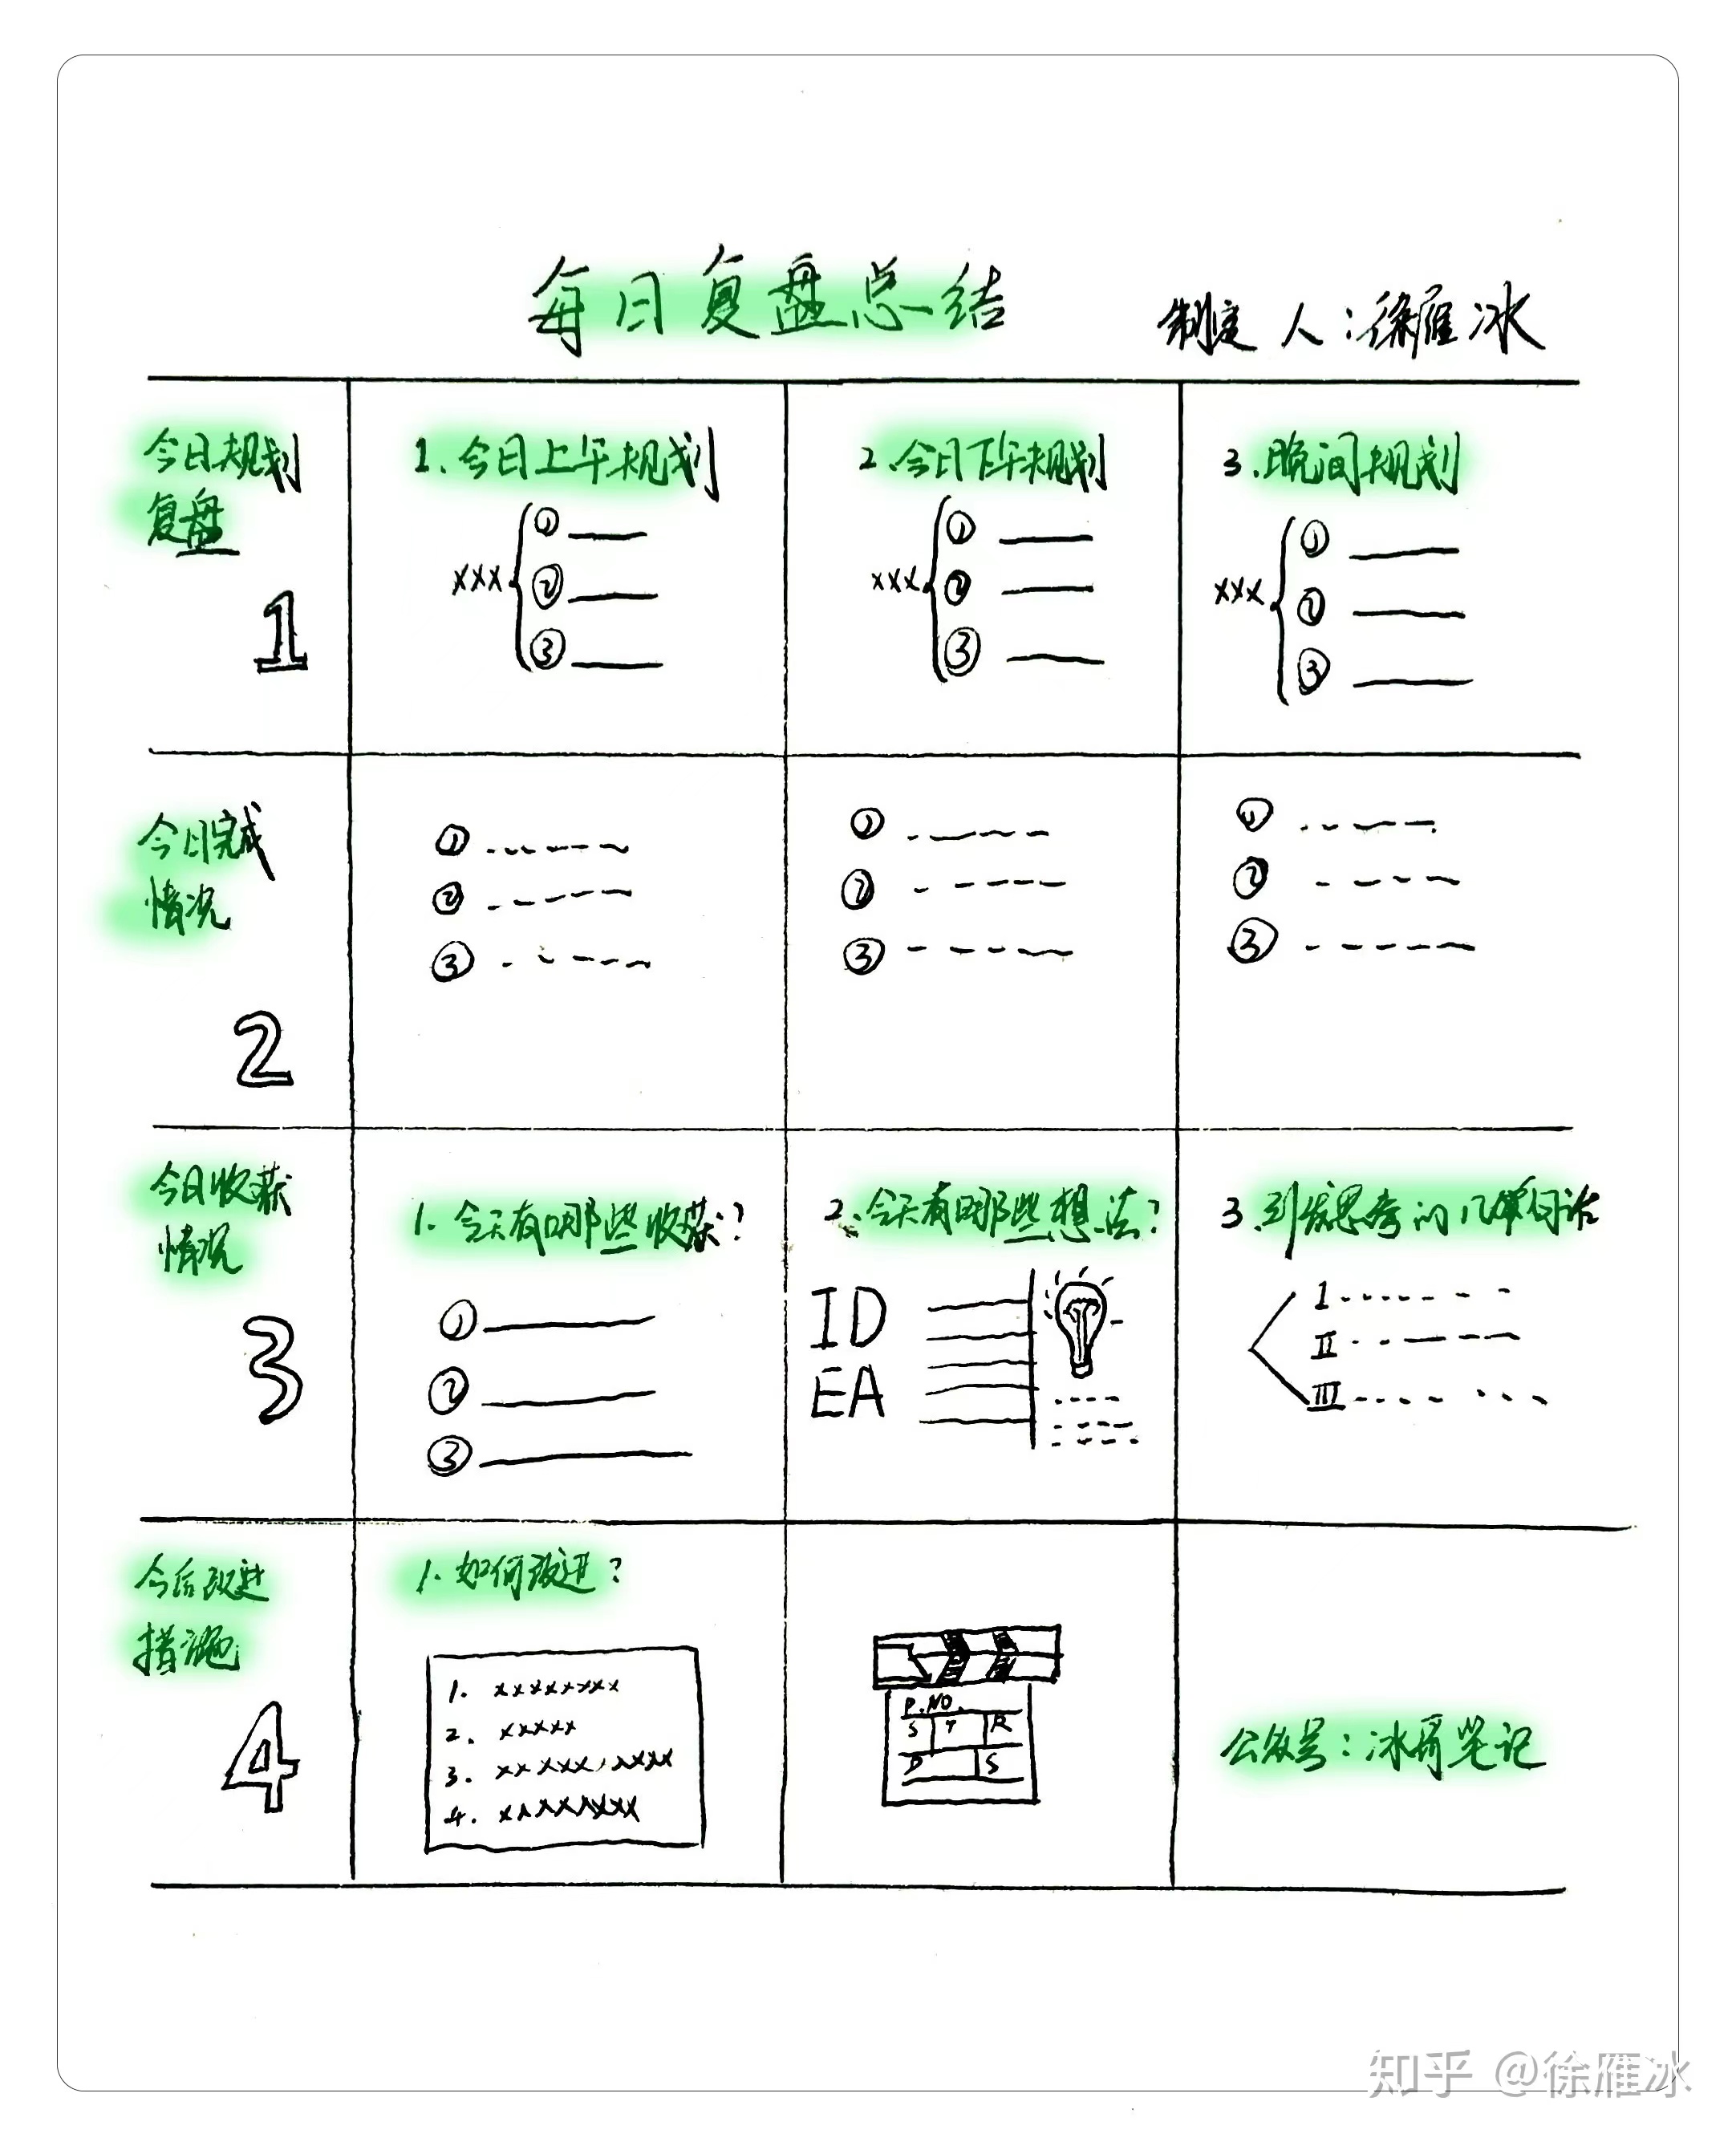 每日复盘总结
制定人：徐雁冰
今日规划
复盘
1
1.今日上午规划
xxx
①
②
③
2.今日下午规划
xxx
①
②
③
3.晚间规划
xxx
①
②
③
今日完成
情况
2
①
②
③
①
②
③
①
②
③
今日收获
情况
3
1.今天有哪些收获？
①
②
③
2.今天有哪些想法？
ID
EA
3.引发思考的几个句话
I
II
III
今后改进
措施
4
1.如何改进？
1. xxxxxxxx
2. xxxxx
3. xxxxx,xxxx
4. xxxxxxx
P.NO.
S T R
D S
公众号：冰哥笔记
知乎 @徐雁冰